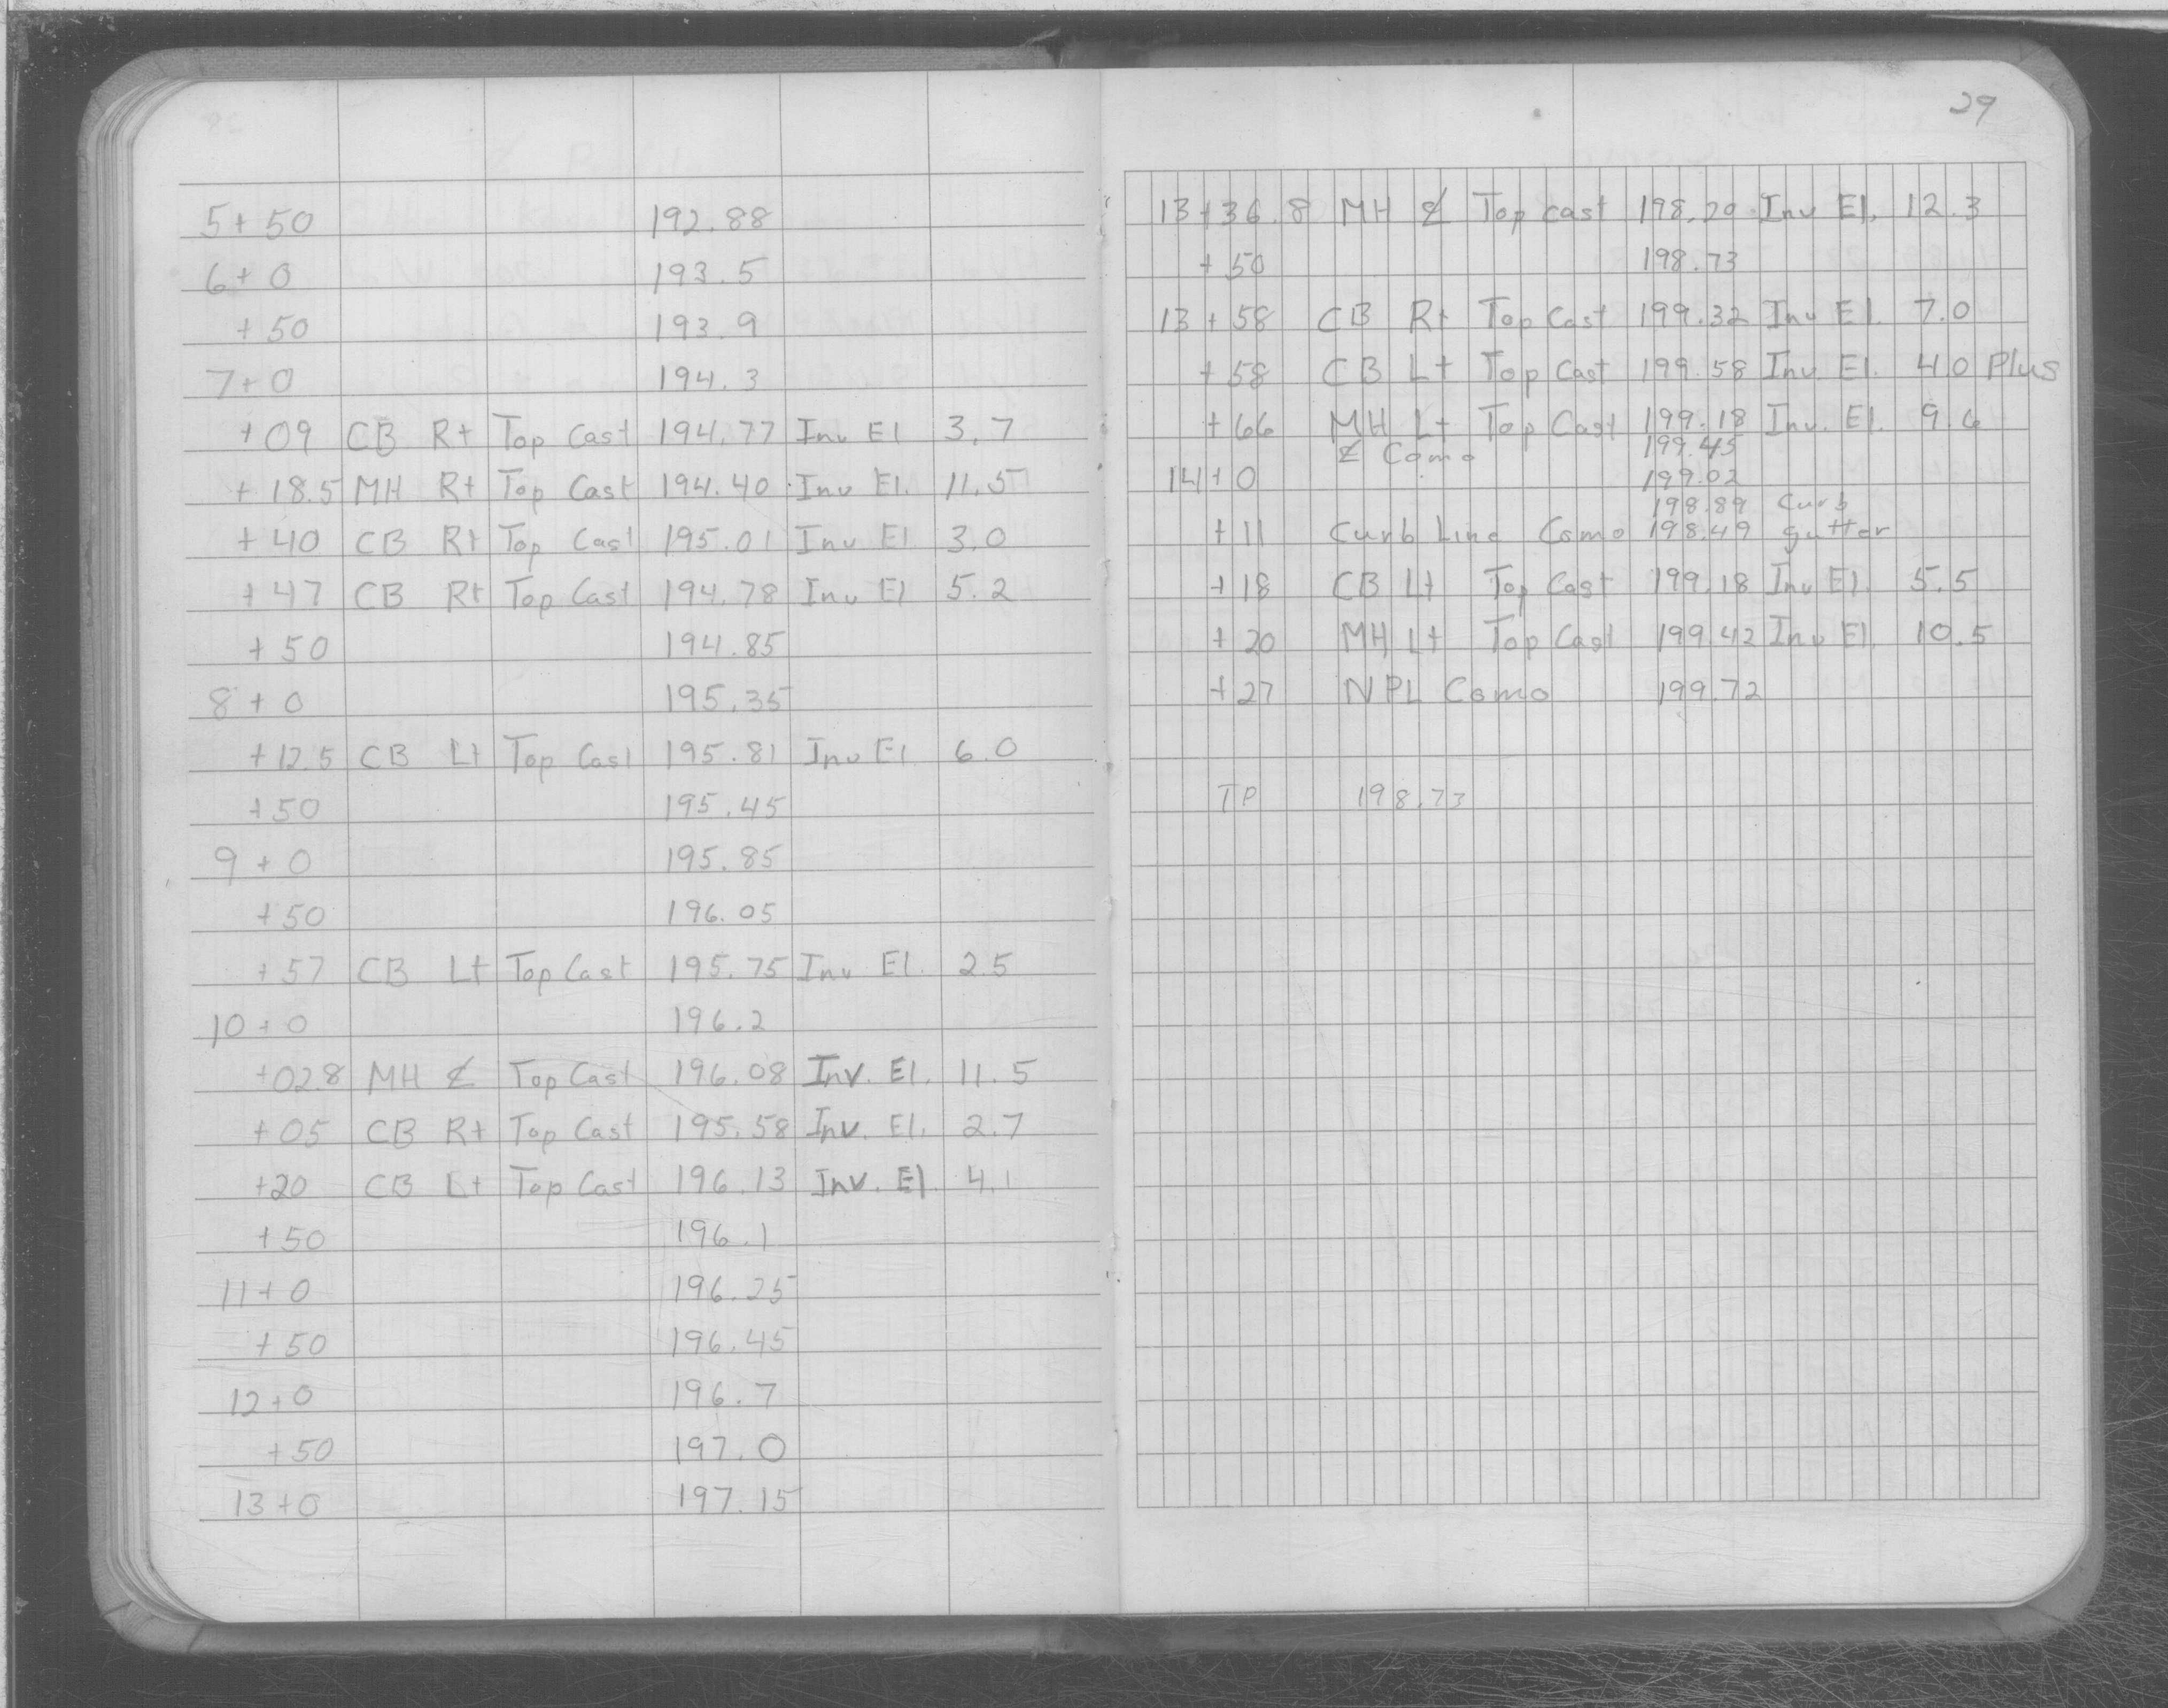 5+50 192.88
6+0 193.5
+50 193.9
7+0 194.3
+09 CB Rt Top Cast 194.77 Inv El 3.7
+18.5 MH Rt Top Cast 194.40 Inv El. 11.5
+40 CB Rt Top Cast 195.01 Inv El 3.0
+47 CB Rt Top Cast 194.78 Inv El 5.2
+50 194.85
8+0 195.35
+12.5 CB Lt Top Cast 195.81 Inv El 6.0
+50 195.45
9+0 195.85
+50 196.05
+57 CB Lt Top Cast 195.75 Inv El. 2.5
10+0 196.2
+02.8 MH ℄ Top Cast 196.08 Inv. El. 11.5
+05 CB Rt Top Cast 195.58 Inv. El. 2.7
+20 CB Lt Top Cast 196.13 Inv. El. 4.1
+50 196.1
11+0 196.25
+50 196.45
12+0 196.7
+50 197.0
13+0 197.15
29
13+36.8 MH ℄ Top cast 198.20 Inv El. 12.3
+50 198.73
13+58 CB Rt Top Cast 199.32 Inv El. 7.0
+58 CB Lt Top Cast 199.58 Inv. El. 4.0 Plus
+66 MH Lt Top Cast 199.18 Inv. El. 9.6
℄ Como 199.45
14+0 199.02
198.89 Curb
+11 Curb Line Como 198.49 gutter
+18 CB Lt Top Cast 199.18 Inv El. 5.5
+20 MH Lt Top Cast 199.42 Inv El. 10.5
+27 NPL Como 199.72
TP 198.73